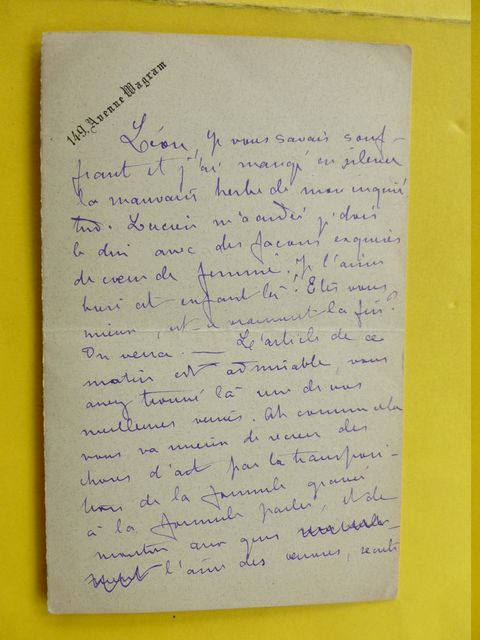 149, Avenue Wagram
Léon, je vous savais souf-
frant et j'ai mangé en silence
la mauvaise herbe de mon inquié
tude. Lucien m'a aidé, je dois
le dire avec des façons exquises
de cœur de femme. Je l'aime
bien cet enfant là ! Etes vous
mieux, est-ce vraiment la fin ?
On verra. — L'article de ce
matin est admirable, vous
avez trouvé là une de vos
meilleures veines. Ah comme cela
vous va mieux de recréer des
choses d'art par la transposi-
tion de la formule gravée
à la formule parlée, et de
montrer aux gens
l'âme des œuvres,